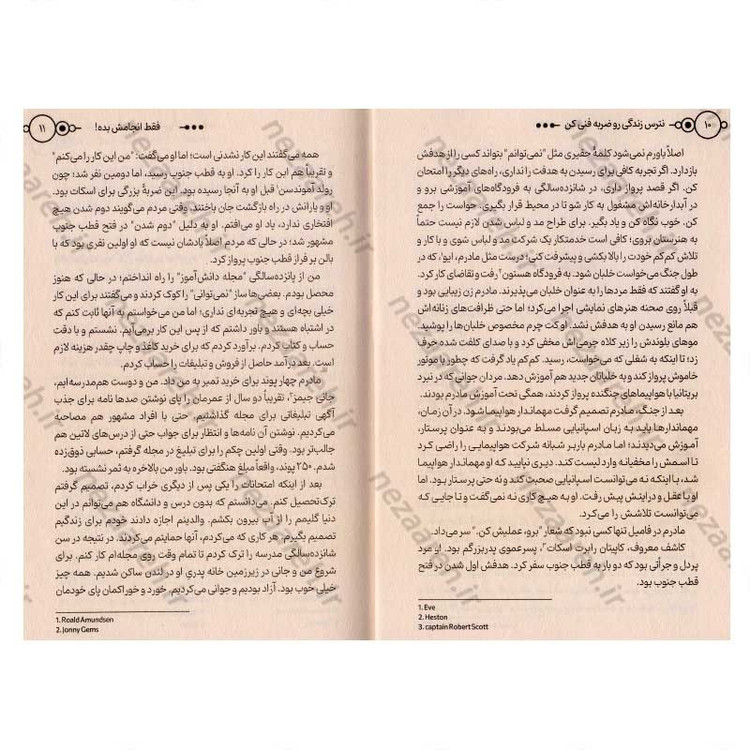 ۱۰ نترس زندگی رو ضربه فنی کن
اصلاً باورم نمی‌شود کلمهٔ حقیری مثل "نمی‌توانم" بتواند کسی را از هدفش
بازدارد. اگر تجربه کافی برای رسیدن به هدفت را نداری، راه‌های دیگر را امتحان
کن. اگر قصد پرواز داری، در شانزده‌سالگی به فرودگاه‌های آموزشی برو و
در آبدارخانه‌اش مشغول به کار شو تا در محیط قرار بگیری. حواست را جمع
کن. خوب نگاه کن و یاد بگیر. برای طراح مد و لباس شدن لازم نیست حتماً
به هنرستان بروی؛ کافی است خدمتکار یک شرکت مد و لباس شوی و با کار و
تلاش کم‌کم خودت را بالا بکشی و پیشرفت کنی؛ درست مثل مادرم، ایوا، که در
طول جنگ می‌خواست خلبان شود. به فرودگاه هستون۲ رفت و تقاضای کار کرد.
به او گفتند که فقط مردها را به عنوان خلبان می‌پذیرند. مادرم زن زیبایی بود و
قبلاً روی صحنه هنرهای نمایشی اجرا می‌کرد؛ اما حتی ظرافت‌های زنانه‌اش
هم مانع رسیدن او به هدفش نشد. او کت چرم مخصوص خلبان‌ها را پوشید.
موهای بلوندش را زیر کلاه چرمی‌اش مخفی کرد و با صدای کلفت شده حرف
زد؛ تا اینکه به شغلی که می‌خواست، رسید. کم‌کم یاد گرفت که چطور با موتور
خاموش پرواز کند و به خلبانان جدید هم آموزش دهد. مردان جوانی که در نبرد
بریتانیا با هواپیماهای جنگنده پرواز کردند، همگی تحت آموزش مادرم بودند.
بعد از جنگ، مادرم تصمیم گرفت مهماندار هواپیما شود. در آن زمان،
مهماندارها باید به زبان اسپانیایی مسلط می‌بودند و به عنوان پرستار،
آموزش می‌دیدند؛ اما مادرم باربر شبانه شرکت هواپیمایی را راضی کرد
تا اسمش را مخفیانه وارد لیست کند. دیری نپایید که او مهماندار هواپیما
شد، با اینکه نه می‌توانست اسپانیایی صحبت کند و نه حتی پرستار بود. اما
او با عقل و درایتش پیش رفت. او به هیچ کاری نه نمی‌گفت و تا جایی که
می‌توانست تلاشش را می‌کرد.
مادرم در فامیل تنها کسی نبود که شعار "برو، عملیش کن." سر می‌داد.
کاشف معروف، کاپیتان رابرت اسکات۳، پسرعموی پدربزرگم بود. او مرد
پردل و جرأتی بود که دو بار به قطب جنوب سفر کرد. هدفش اول شدن در فتح
قطب جنوب بود.
1. Eve
2. Heston
3. captain Robert Scott
فقط انجامش بده! ۱۱
همه می‌گفتند این کار نشدنی است؛ اما او می‌گفت: "من این کار را می‌کنم"
و تقریبا هم این کار را کرد. او به قطب جنوب رسید، اما دومین نفر شد؛ چون
رولد آموندسن۱ قبل او به آنجا رسیده بود. این ضربهٔ بزرگی برای اسکات بود.
او و یارانش در راه بازگشت جان باختند. وقتی مردم می‌گویند دوم شدن هیچ
افتخاری ندارد، یاد او می‌افتم. او به دلیل "دوم شدن" در فتح قطب جنوب
مشهور شد؛ در حالی که مردم اصلاً یادشان نیست که او اولین نفری بود که با
بالن بر فراز قطب جنوب پرواز کرد.
من از پانزده‌سالگی "مجله دانش‌آموز" را راه انداختم؛ در حالی که هنوز
محصل بودم. بعضی‌ها ساز "نمی‌توانی" را کوک کردند و می‌گفتند برای این کار
خیلی بچه‌ای و هیچ تجربه‌ای نداری؛ اما من می‌خواستم به آنها ثابت کنم که
در اشتباه هستند و باور داشتم که از پس این کار برمی‌آیم. نشستم و با دقت
حساب و کتاب کردم. برآورد کردم که برای خرید کاغذ و چاپ چقدر هزینه لازم
است. بعد درآمد حاصل از فروش و تبلیغات را حساب کردم.
مادرم چهار پوند برای خرید تمبر به من داد. من و دوست هم‌مدرسه‌ایم،
جانی جیمز۲، تقریباً دو سال از عمرمان را پای نوشتن صدها نامه برای جذب
آگهی تبلیغاتی برای مجله گذاشتیم. حتی با افراد مشهور هم مصاحبه
می‌کردیم. نوشتن آن نامه‌ها و انتظار برای جواب حتی از درس‌های لاتین هم
جالب‌تر بود. وقتی اولین چکم را برای تبلیغ در مجله گرفتم، حسابی ذوق‌زده
شدم. ۲۵۰ پوند، واقعاً مبلغ هنگفتی بود. باور من بالاخره به ثمر نشسته بود.
بعد از اینکه امتحانات را یکی پس از دیگری خراب کردم، تصمیم گرفتم
ترک‌تحصیل کنم. می‌دانستم که بدون درس و دانشگاه هم می‌توانم در این
دنیا گلیمم را از آب بیرون بکشم. والدینم اجازه دادند خودم برای زندگیم
تصمیم بگیرم. هر کاری که می‌کردم، آنها حمایتم می‌کردند. در نتیجه در سن
شانزده‌سالگی مدرسه را ترک کردم تا تمام وقت روی مجله‌ام کار کنم. برای
شروع من و جانی در زیرزمین خانه پدری او در لندن ساکن شدیم. همه چیز
خیلی خوب بود. آزاد بودیم و جوانی می‌کردیم. خورد و خوراکمان پای خودمان
1. Roald Amundsen
2. Jonny Gems
nezaareh.ir